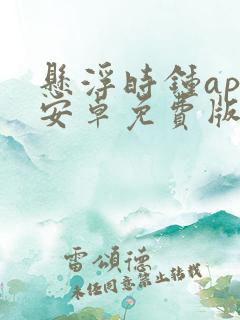 懸浮時鍾ap
安卓免費版
雷頌德
未任同意禁止转载